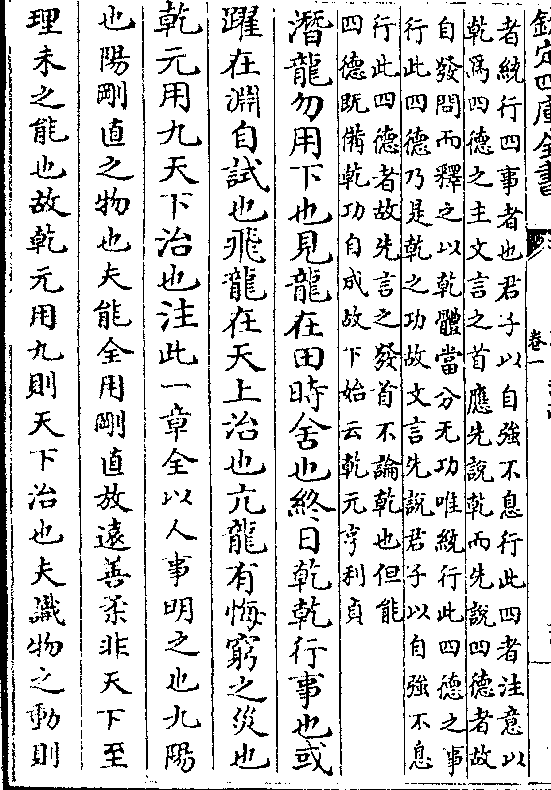 欽定四庫全書
卷一
者統行四事者也君子以自強不息行此四者注意以
乾為四德之主文言之首應先說乾而先說四德者故
自發問而釋之以乾體當分无功唯統行此四德之事
行此四德乃是乾之功故文言先說君子以自強不息
行此四德者故先言之發首不論乾也但能
四德既備乾功自成故下始云乾元亨利貞
潛龍勿用下也見龍在田時舍也終日乾乾行事也或
躍在淵自試也飛龍在天上治也亢龍有悔窮之災也
乾元用九天下治也注此一章全以人事明之也九陽
也陽剛直之物也夫能全用剛直放遠善柔非天下至
理未之能也故乾元用九則天下治也夫識物之動則